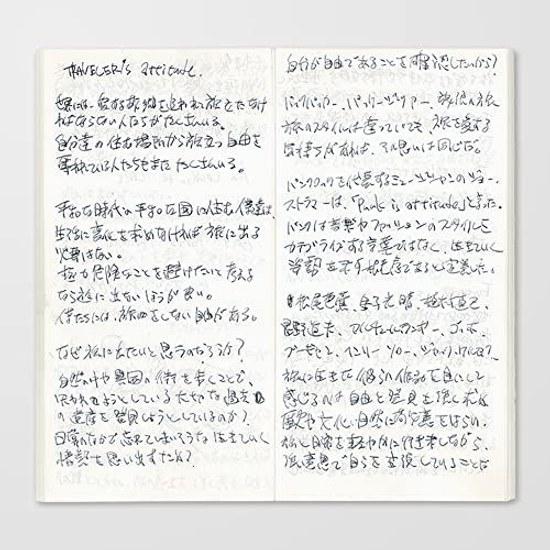 TRAVELER'S attitude.
世界には、愛する故郷を追われ、旅をしなけ
ればならない人たちがたくさんいる。
自分達の住む場所から旅立つ自由を
奪われている人たちもまたたくさんいる。
平和な時代の平和な国に住む僕達は、
生活に変化を求めなければ旅に出る
必要はない。
極力危険なことを避けたいと考える
なら旅に出ないほうが良い。
僕たちには、旅をしない自由がある。
なぜ旅に出たいと思うのだろうか?
自然の中や異国の街を歩くことで、
失われようとしている大切な過去
の遺産を発見しようとしているのか?
日常のなかで忘れてしまいそうな生きていく
情熱を思い出すため?
自分が自由であることを確認したいから?
バックパッカー、パッケージツアー、
旅のスタイルは違っていても、旅を愛する
気持ちがあれば、その思いは同じだ。
パンクロックを代表するミュージシャンのジョー・
ストラマーは、「Punk is attitude」と言った。
パンクは音楽やファッションのスタイルを
カテゴライズする言葉ではなく、生きていく
姿勢であると定義した。
松尾芭蕉、金子光晴、植村直己、
星野道夫、ゴッホ、
ゴーギャン、ヘンリー・ソロー、ジャック・ケルアック、
旅に生きた彼らの作品を目にして
感じるのは自由と発見を強く求め
歴史や文化、自然に敬意をはらい、
旅と日常を軽やかに行き来しながら、
強い意思で自らを表現していることだ